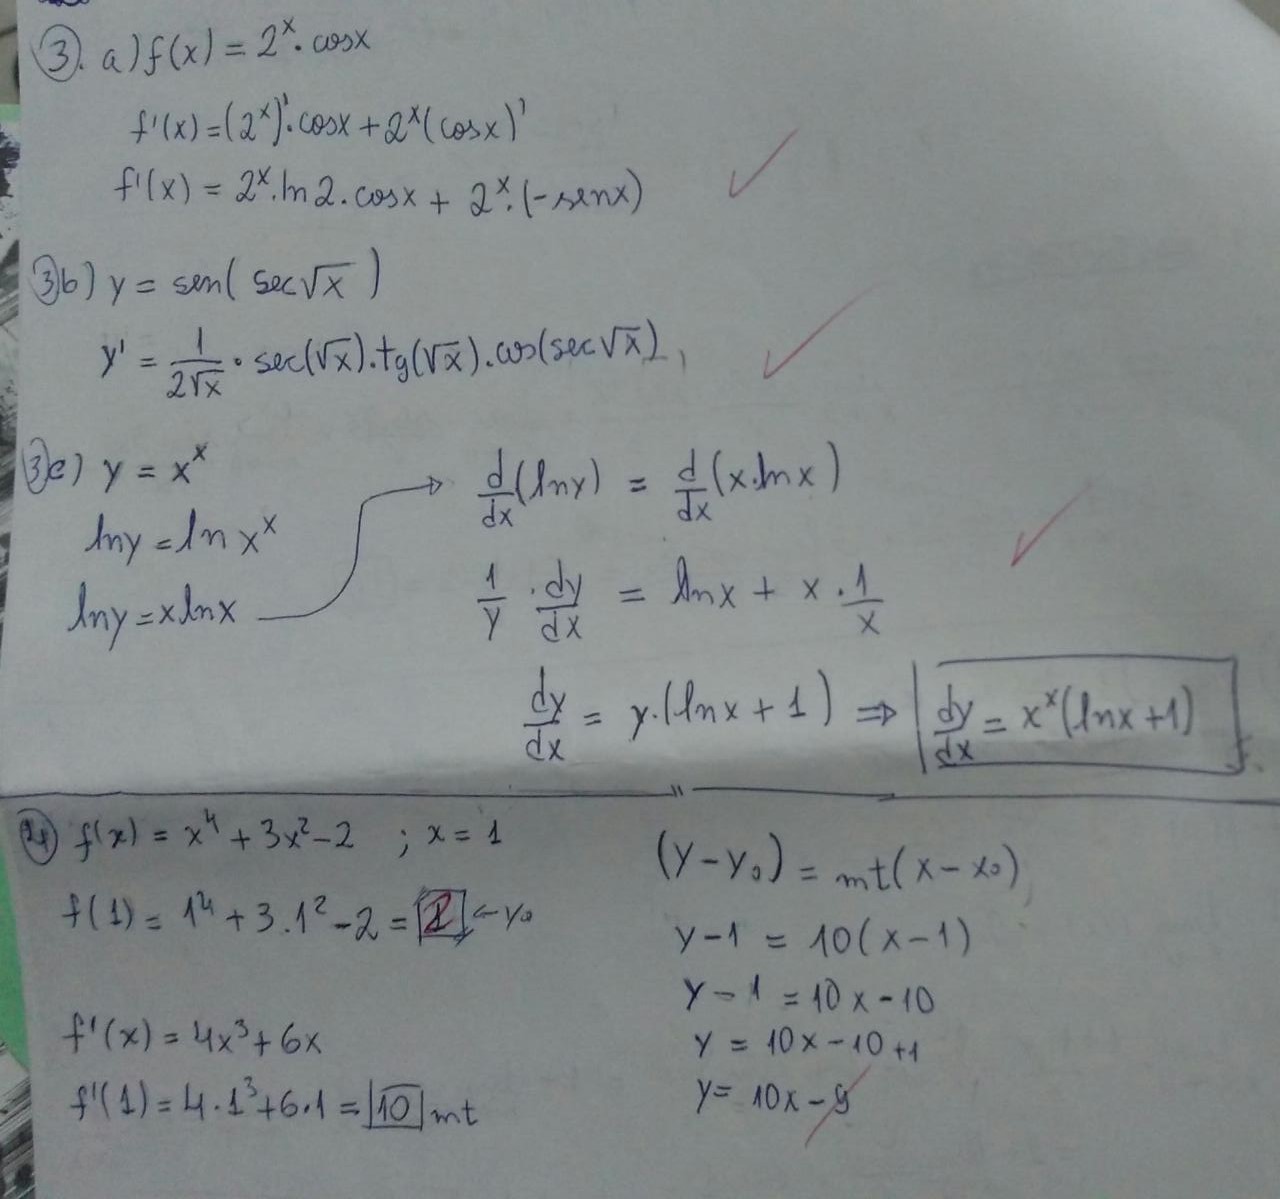 3. a) f(x) = 2^x . cosx
f'(x) = (2^x)' . cosx + 2^x (cosx)'
f'(x) = 2^x . ln2 . cosx + 2^x . (-senx)
3b) y = sen( sec√x )
y' = 1/(2√x) • sec(√x) . tg(√x) . cos(sec√x)
3c) y = x^x
lny = ln x^x
lny = x lnx
d/dx (lny) = d/dx (x.lnx)
1/y . dy/dx = lnx + x . 1/x
dy/dx = y.(lnx + 1) ⇒ dy/dx = x^x (lnx + 1)
f(x) = x^4 + 3x^2 - 2 ; x = 1
f(1) = 1^4 + 3.1^2 - 2 = 2 ← y₀
f'(x) = 4x^3 + 6x
f'(1) = 4.1^3 + 6.1 = 10 mt
(y - y₀) = mt(x - x₀)
y - 1 = 10(x - 1)
y - 1 = 10x - 10
y = 10x - 10 + 1
y = 10x - 9